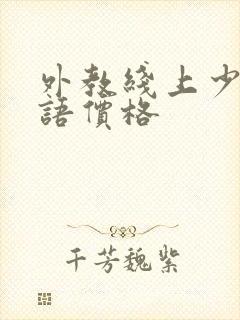 外教綫上少
語價格
千芳魏紫